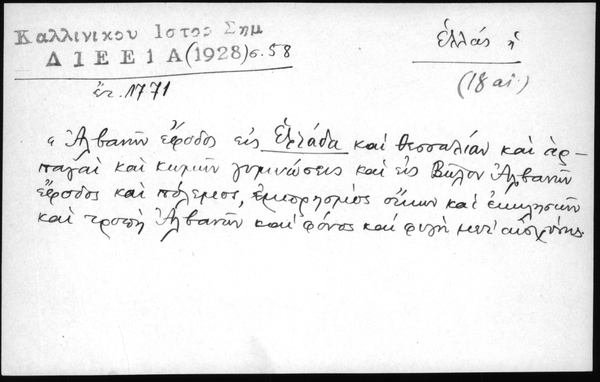 Καλλινικου Ιστορ Σημ
Δ Ι Ε Ε 1 Α (1928) σ. 58
ἔτ. 1771
Ἑλλάς ἡ
(18 αἰ.)
« Ἀλβανῶν ἔφοδος εἰς Ἑλλάδα καὶ Θεσσαλίαν καὶ ἁρ-
παγαὶ καὶ κωμῶν γυμνώσεις καὶ εἰς Βῶλον Ἀλβανῶν
ἔφοδος καὶ πόλεμος, ἐμπρησμὸς οἴκων καὶ ἐκκλησιῶν
καὶ τροπὴ Ἀλβανῶν καὶ φόνος καὶ φυγὴ μετ' αἰσχύνης.